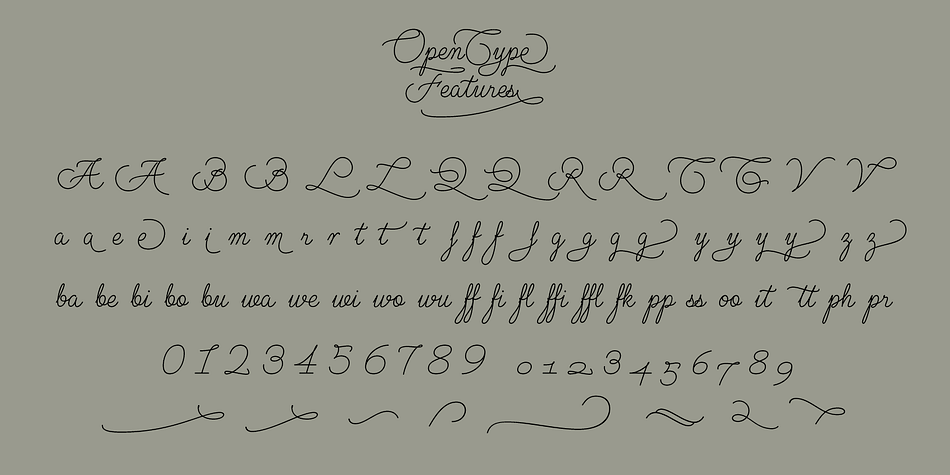 OpenType
Features
A A B B L L Q Q R R T T V V
a a e e i i m m r r t t t f f f f g g g g y y y y z z
ba be bi bo bu wa we wi wo wu ff fi fl ffi ffl fk pp ss oo it tt ph pr
0 1 2 3 4 5 6 7 8 9 0 1 2 3 4 5 6 7 8 9